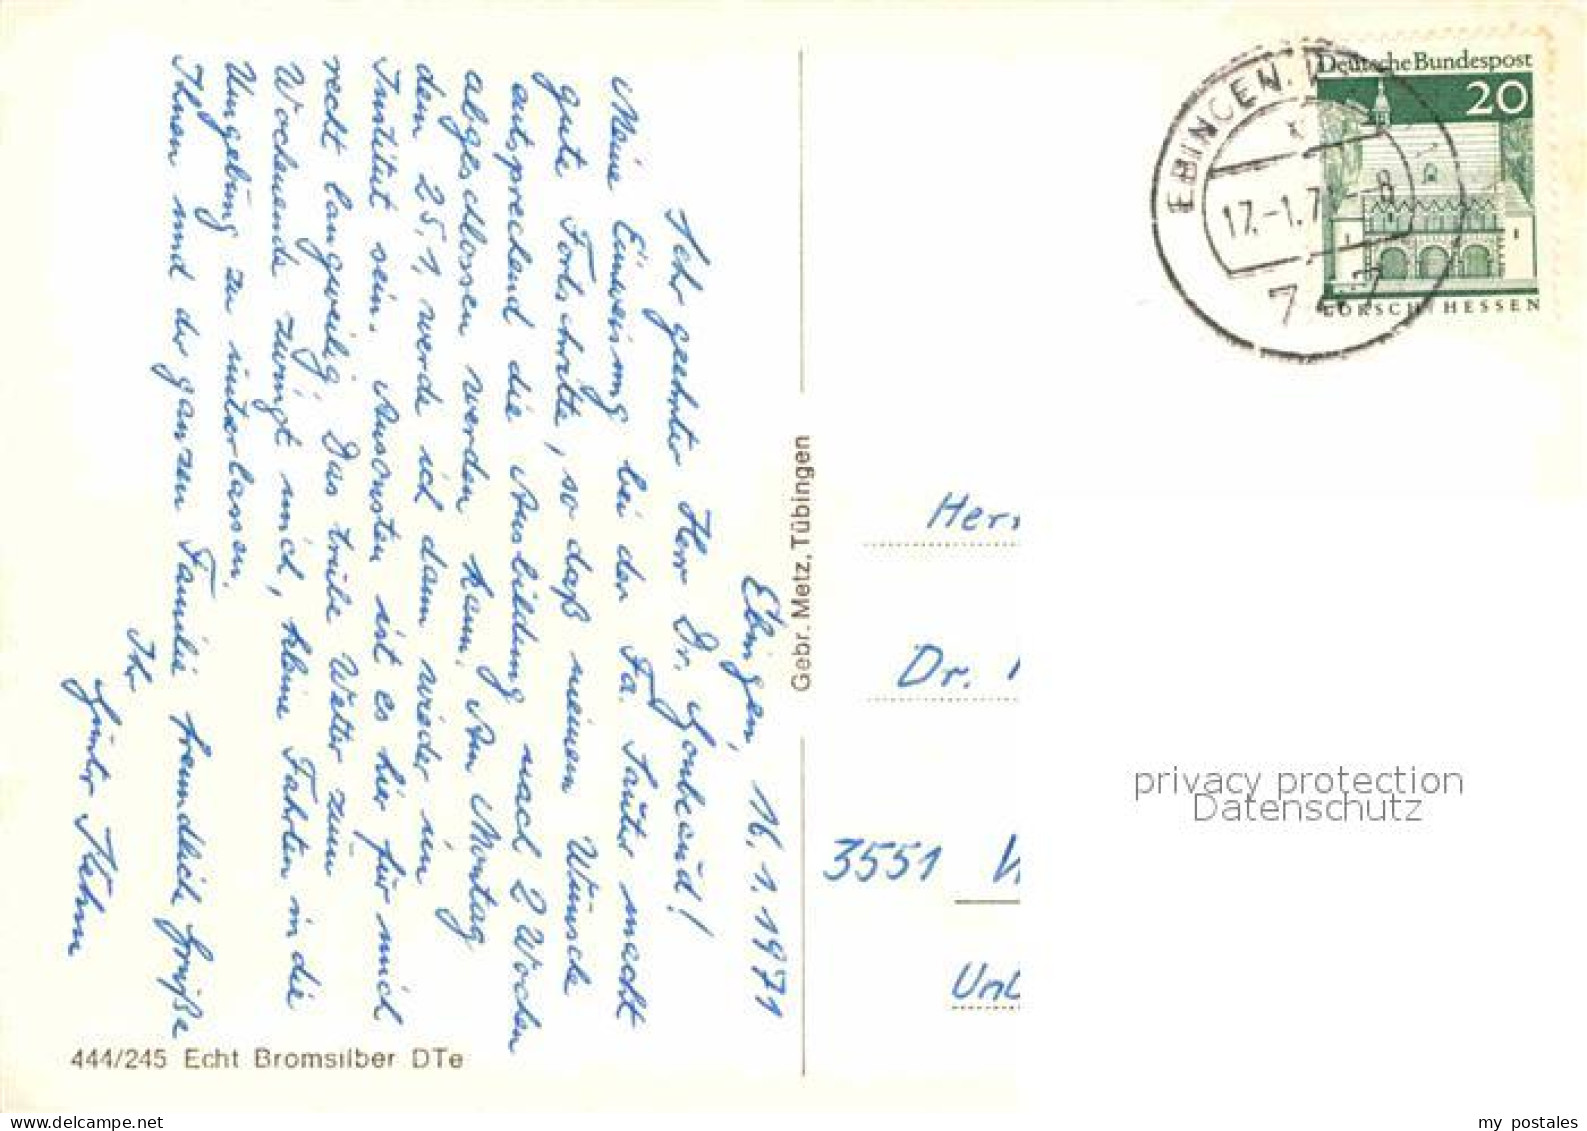 Ebingen, 16.1.1971
Sehr geehrter Herr Dr. !
Meine Einweisung bei der Fa. Sauter macht
gute Fortschritte, so daß meinem Wunsche
entsprechend die Ausbildung nach 2 Wochen
abgeschlossen werden kann. Am Montag
dem 25.1. werde ich dann wieder im
Institut sein. Ansonsten ist es hier für mich
recht langweilig. Das trübe Wetter zum
Wochenende zwingt mich, kleine Fahrten in die
Umgebung zu unterlassen.
Ihnen und der ganzen Familie freundliche Grüße
Ihr
Günter
444/245 Echt Bromsilber DTe
Gebr. Metz, Tübingen
Deutsche Bundespost
20
LORSCH/HESSEN
EBINGEN
17.-1.71-8
747
Herr
Dr.
3551
privacy protection
Datenschutz
my postales